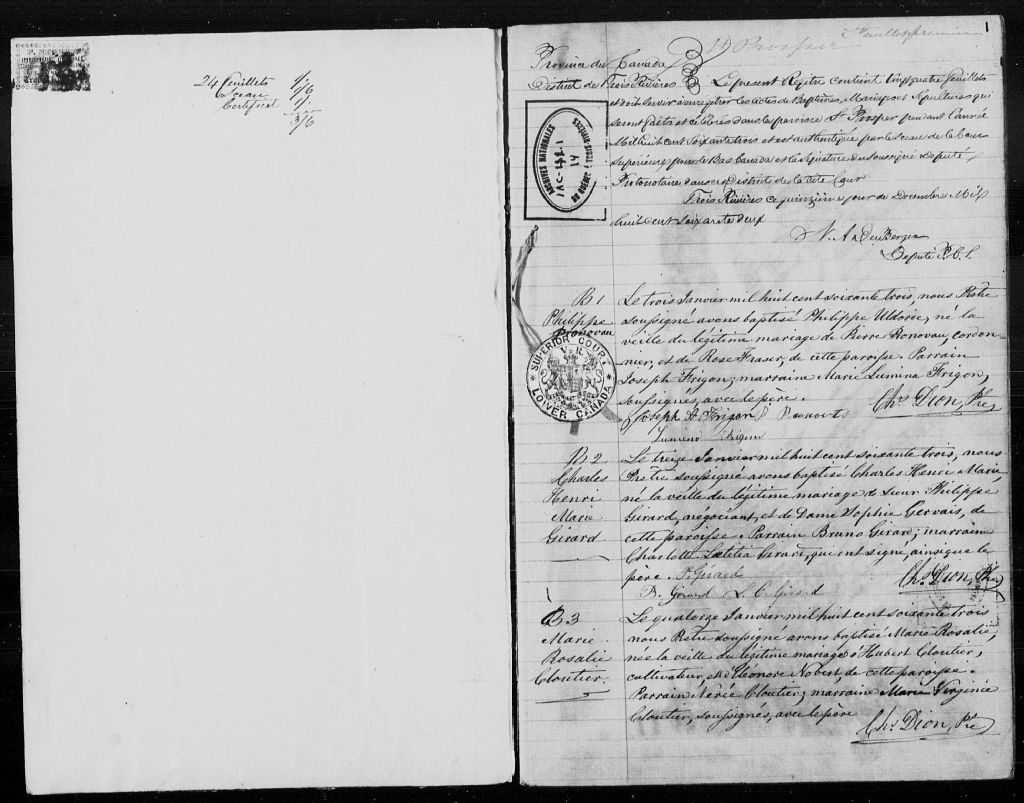 24 feuillets 1/6
Sceau 1/6
Certificat 1/.
3/6
1
St Prosper
2e feuillet premier
Province du Canada
District de Trois Rivières Le présent Registre contient vingt quatre feuillets
et doit servir à enregistrer les actes de Baptêmes, Mariages et Sépultures qui
seront faits et célébrés dans la paroisse St Prosper pendant l'année
Mil huit cent soixante trois et est authentiqué par le sceau de la Cour
Supérieure pour le Bas Canada et la signature du soussigné Député
Protonotaire dans ce District de la dite Cour
Trois Rivières ce quinzième jour de Décembre Mil
huit cent soixante deux
Député P.C.S.
ARCHIVES NATIONALES
DU QUÉBEC À TROIS-RIVIÈRES
SUPERIOR COURT
V R
LOWER CANADA
B 1
Philippe
Bronovau
Le trois Janvier mil huit cent soixante trois, nous Prêtre
soussigné avons baptisé Philippe Uldoric, né la
veille du légitime mariage de Pierre Ronovau, cordon-
nier, et de Rose Fraser, de cette paroisse. Parrain
Joseph Frigon; marraine Marie Lumina Frigon,
soussignés, avec le père.
Chs Dion, Ptre
Joseph H Frigon
Lumina Frigon
B 2
Charles
Henri
Marie
Girard
Le treize Janvier mil huit cent soixante trois, nous
Prêtre soussigné avons baptisé Charles Henri Marie
né la veille du légitime mariage de Sieur Philippe
Girard, négociant, et de Dame Sophie Gervais, de
cette paroisse. Parrain Bruno Girard; marraine
Charlotte Lætitia Girard, qui ont signé, ainsi que le
père. P. Girard
B. Girard L. C. Girard
Chs Dion, Ptre
B 3
Marie
Rosalie
Cloutier.
Le quatorze Janvier mil huit cent soixante trois
nous Prêtre soussigné avons baptisé Marie Rosalie,
née la veille du légitime mariage d'Hubert Cloutier,
cultivateur, et d'Eléonore Nobert, de cette paroisse.
Parrain Nérée Cloutier; marraine Marie Virginie
Cloutier, soussignés, avec le père
Chs Dion, Ptre